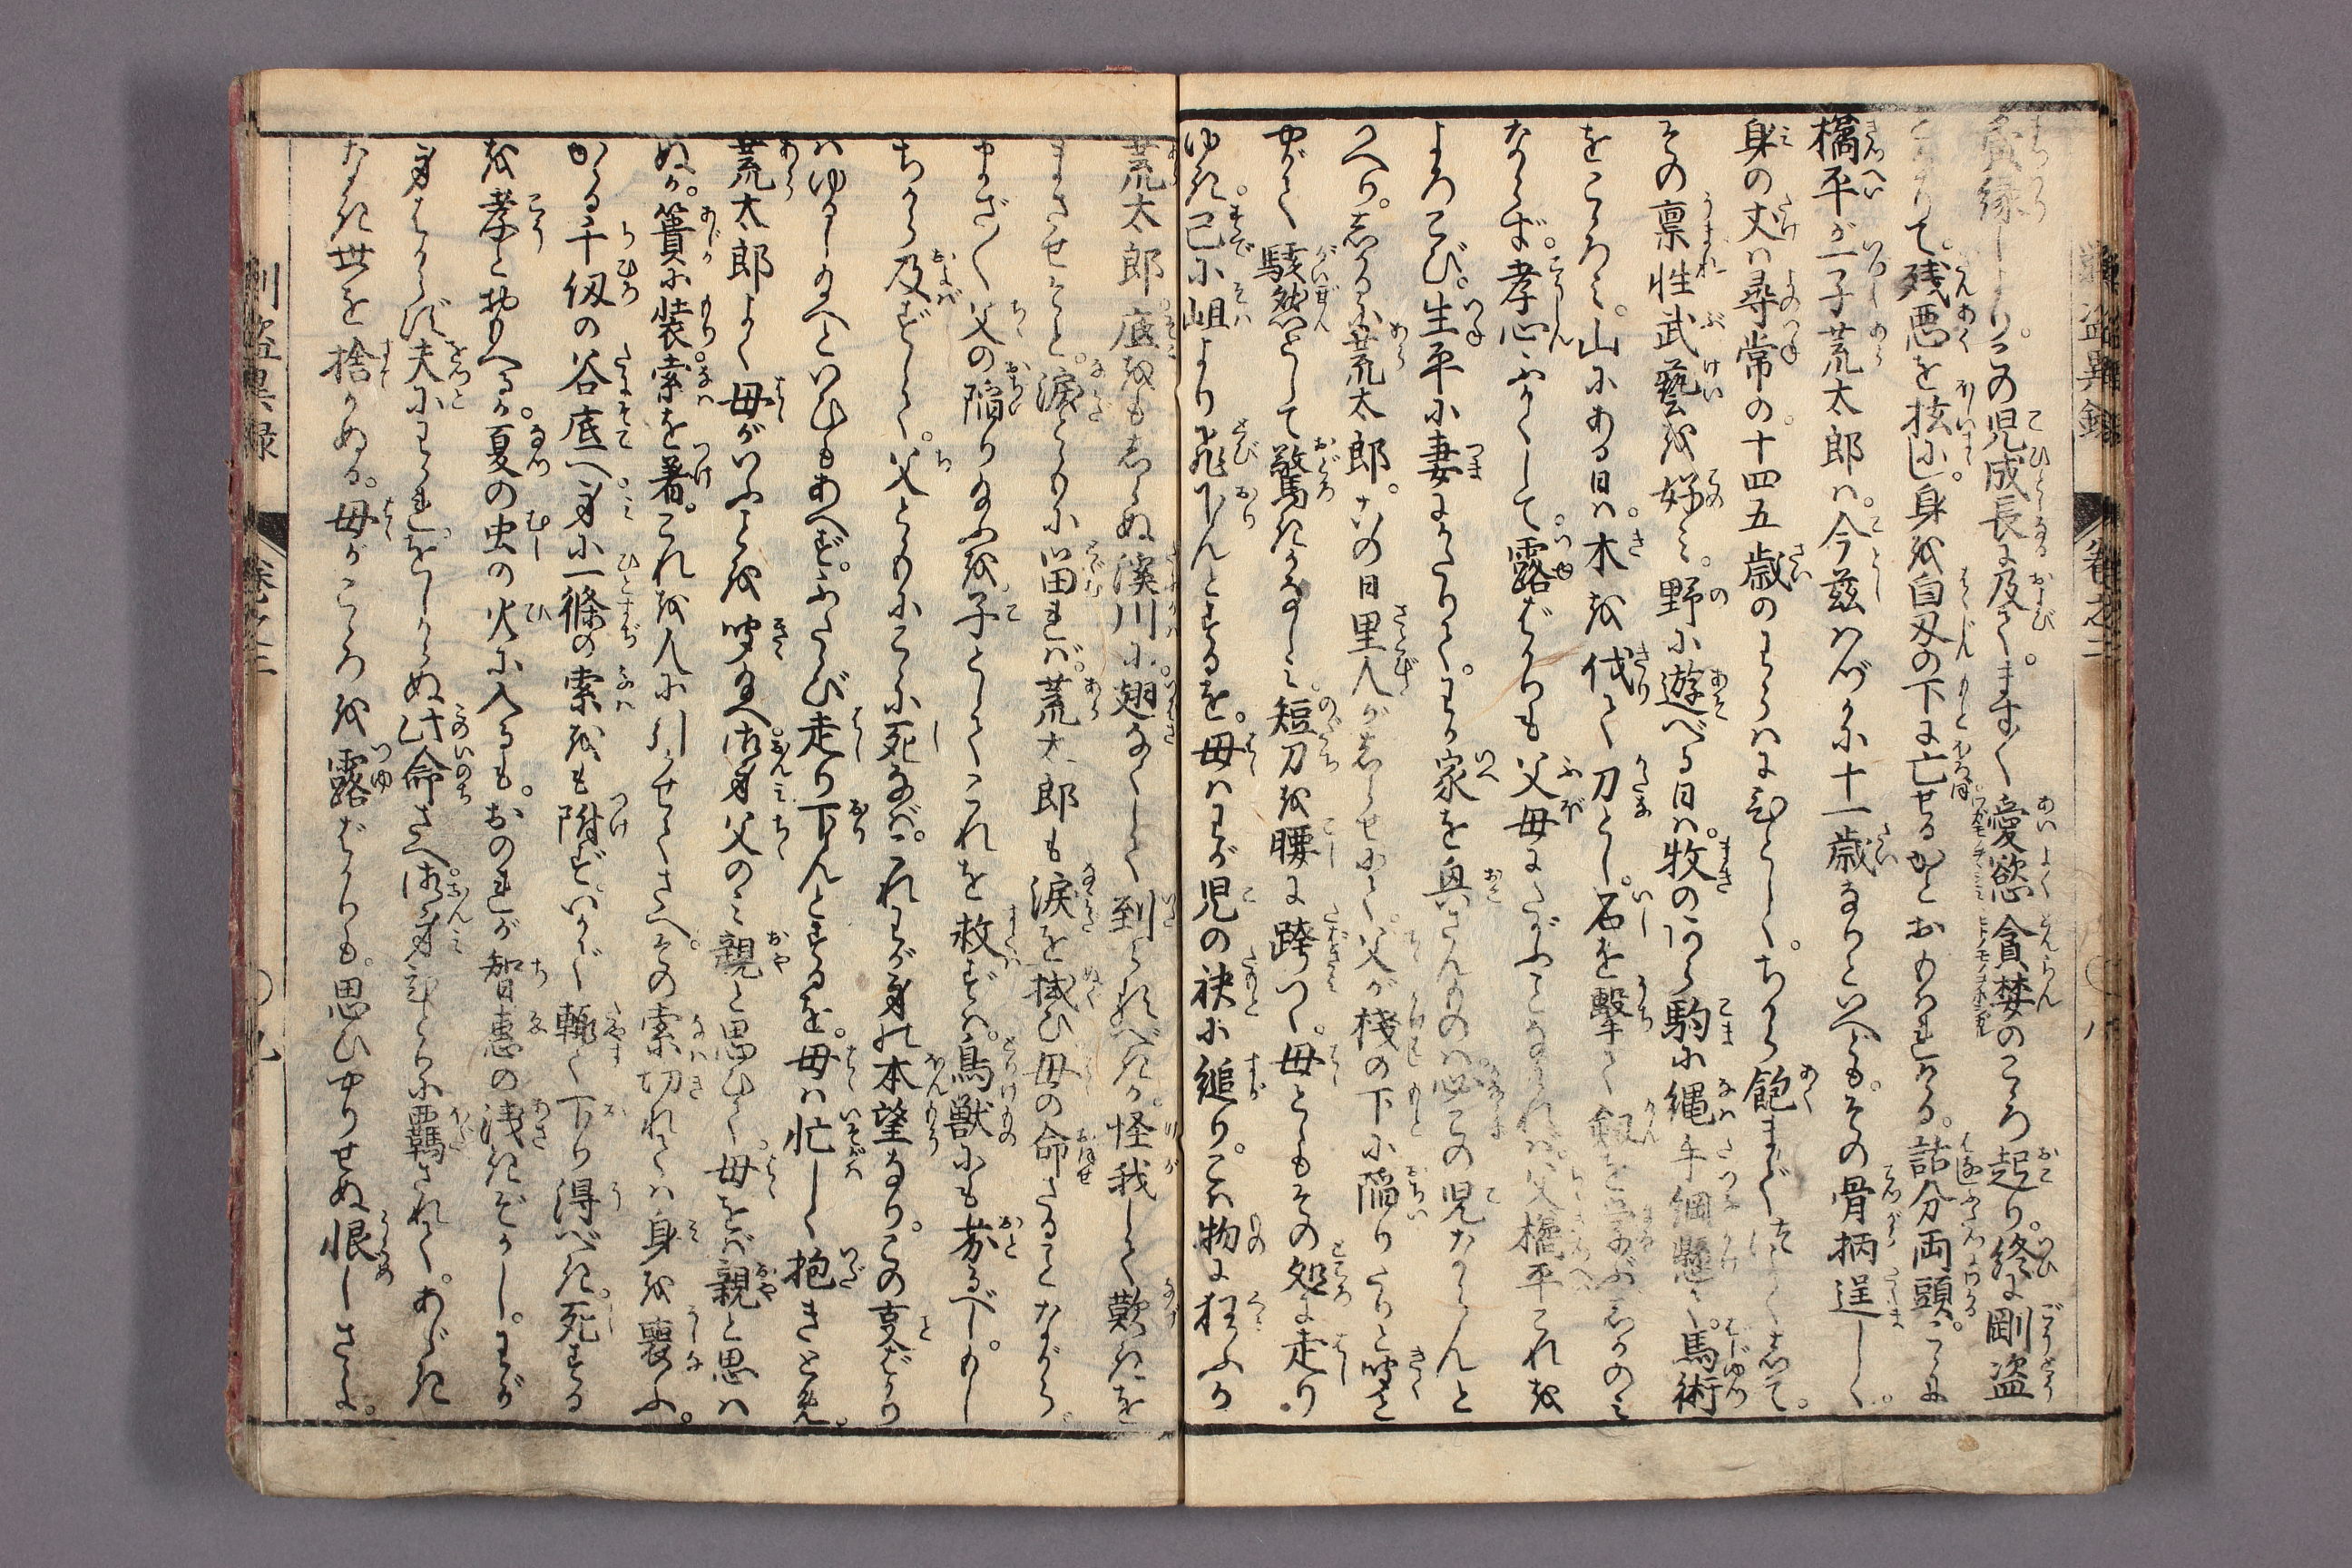 夤縁しより。この児成長に及て。ます〳〵愛慾貪婪のこゝろ起り。終に剛盗
となりて。残悪を挍にし。身を白刃の下に亡せるかとおもはれける。詰分両頭。こゝに
橘平が一子荒太郎は。今茲はづかに十一歳なりといへども。その骨柄逞しく。
身の丈は尋常の。十四五歳のわらはにひとしく。ちから飽まで注よくして。
その禀性武藝を好み。野に遊べる日は。牧のあら駒に縄手綱懸て。馬術
をこゝろみ。山にある日は。木を伐て刀とし。石を撃て劔を学ぶ。しかのみ
ならず。孝心ふかくして。露ばかりも父母にたがふことなければ。父橘平これを
よろこび。生平に妻にかたりて。わが家を興さんものは。必この児ならんと
いへり。しかるに荒太郎。その日里人が しらせにて。父が桟の下に陥りたりと聞て
やがて駭然として驚きかなしみ。短刀を腰に跨つゝ。母とともその処に走り
ゆき。已に岨より飛下んとするを。母はわが児の袂に縋り。こは物に狂ふか
荒太郎。底をもしらぬ溪川に。翅なくして到らるべきか。怪我して歎きを
まさせそと。涙とゝもに留れば。荒太郎も涙を拭ひ。母の命さることながら。
まざ〳〵父の陥り給ふを。子としてこれを救ずは。鳥獣にも劣るべし。もし
ちから及ずして。父とゝもにこゝに死なば。これわが身の本望なり。この事ばかり
はゆるし給へといひもあへず。ふたゝび走り下んとするを。母は忙しく抱きとゞめ。
荒太郎よく母がいふことを聞給へ。御身父のみ親と思ひて。母をば親と思は
ぬか。簣に装。索を著。これを人に引かせてさへ。その索切れては身を喪ふ。
かゝる千仭の谷底へ。身に一條の索をも附ず。いかで輙く下り得べき。死する
を孝と おもへるか。夏の虫の火に入るも。おのれが智惠の浅きぞかし。わが
身はからず夫にわかれ。をしからぬ此命さへ。御身ひとりに羈されて。あぢき
なき世を捨かぬる。母がこゝろを露ばかりも。思ひやりせぬ恨しさよ。